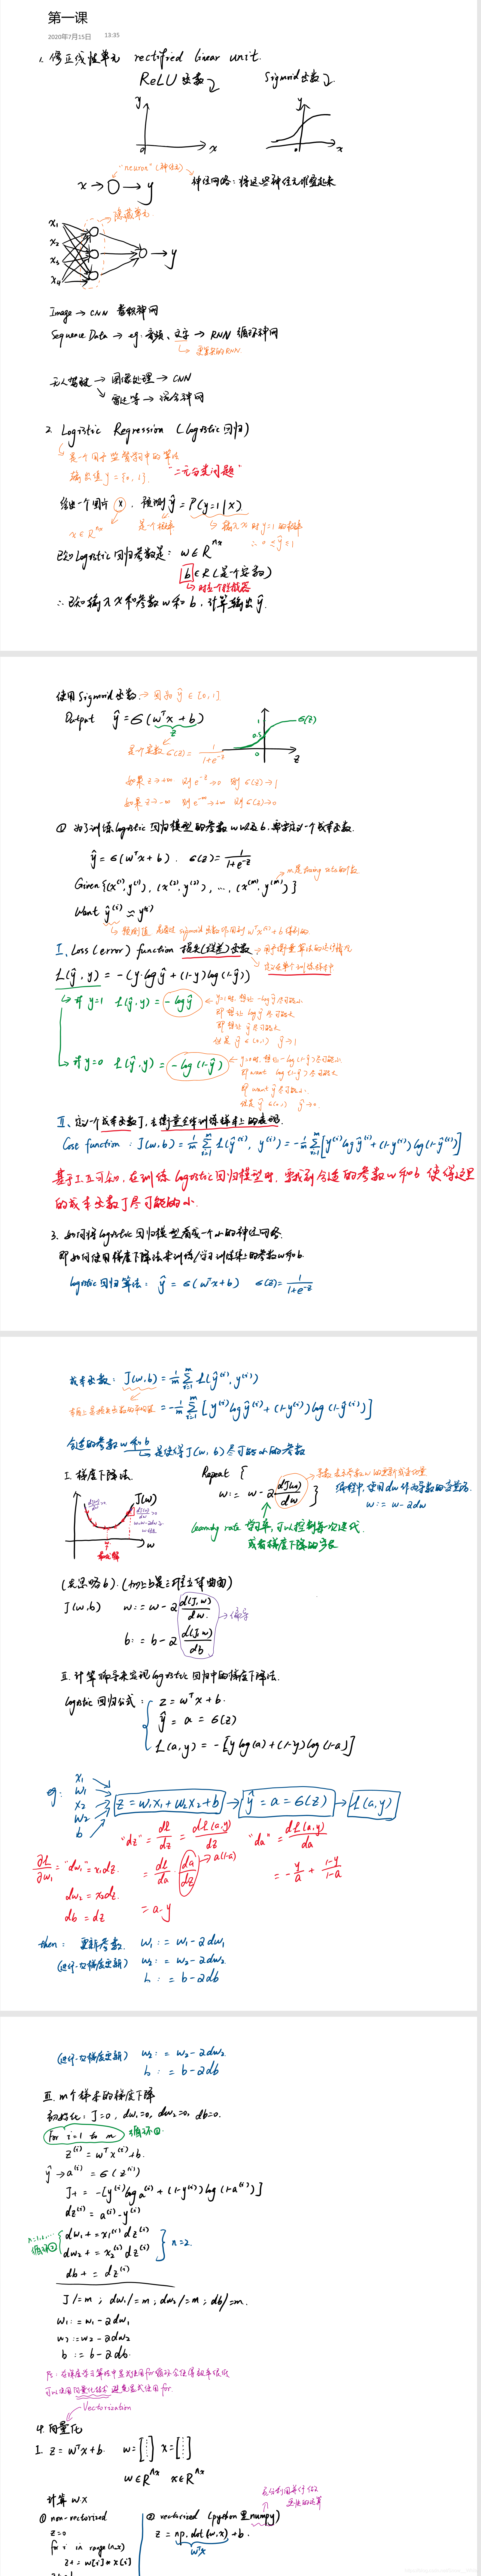 第一课
2020年7月15日 13:35
1. 修正线性单元 rectified linear unit.
ReLU 函数 Sigmoid函数
y y
0 x 0 x
"neuron"(神经元)
x → ○ → y 神经网络:将这些神经元堆叠起来
隐藏单元
x1
x2
x3
x4
y
Image → CNN 卷积神网
Sequence Data → eg: 音频、文字 → RNN 循环神网
更复杂的RNN.
无人驾驶 → 图像处理 → CNN
雷达等 → 混合神网
2. Logistic Regression (logistic回归)
是一个用于监督学习中的算法
输出值 y = {0, 1}. "二元分类问题"
给出一个图片 x, 预测 ŷ = P(y=1 | x)
x ∈ R^nx 是个概率 输入x时y=1的概率
∴ 0 ≤ ŷ ≤ 1
已知 logistic 回归参数是: w ∈ R^nx
b ∈ R (是个实数)
∴ 已知输入 x 和参数 w 和 b, 计算输出 ŷ.
使用Sigmoid函数 → 因为 ŷ ∈ [0,1]
Output ŷ = σ(w^T x + b)
z
是个实数 σ(z) = 1/(1+e^-z)
1
0.5
0
σ(z)
z
如果 z→+∞ 则 e^-z→0 则 σ(z)→1
如果 z→-∞ 则 e^-z→+∞ 则 σ(z)→0
① 为了训练logistic回归模型的参数w以及b,需要定义一个成本函数.
ŷ = σ(w^T x + b). σ(z) = 1/(1+e^-z)
Given {(x^(1), y^(1)), (x^(2), y^(2)), ..., (x^(m), y^(m))}
Want ŷ^(i) ≈ y^(i)
I. Loss (error) function 损失(误差)函数 → 用于衡量算法的运行情况
定义在单个训练样本中
L(ŷ, y) = -(y·log ŷ + (1-y) log (1-ŷ))
if y=1 L(ŷ, y) = -log ŷ
if y=0 L(ŷ, y) = -log (1-ŷ)
II. 定义一个成本函数J, 去衡量全体训练样本上的表现.
Cost function: J(w,b) = 1/m Σ L(ŷ^(i), y^(i)) = -1/m Σ [y^(i) log ŷ^(i) + (1-y^(i)) log (1-ŷ^(i))]
基于I、II可知, 在训练 logistic回归模型时, 要找到合适的参数 w 和 b 使得这里
的成本函数J尽可能的小.
3. 如何将logistic回归模型看成一个小的神经网络.
即如何使用梯度下降法来训练/学习训练集上的参数w和b.
logistic回归算法: ŷ = σ(w^T x + b) σ(z) = 1/(1+e^-z)
成本函数: J(w,b) = 1/m Σ L(ŷ^(i), y^(i))
= -1/m Σ [y^(i) log ŷ^(i) + (1-y^(i)) log (1-ŷ^(i))]
合适的参数 w 和 b
是使得J(w,b)尽可能小的参数
I. 梯度下降法. Repeat {
w := w - α dJ(w)/dw }
J(w)
w
编程中, 使用dw作为导数的变量名.
w := w - αdw
learning rate 学习率, 可以控制每一次迭代
或者梯度下降的步长
J(w,b) w := w - α d(J,w)/dw.
b := b - α d(J,w)/db
偏导
II. 计算偏导来实现logistic回归中的梯度下降法.
logistic 回归公式:
z = w^T x + b.
ŷ = a = σ(z)
L(a,y) = -[y log(a) + (1-y) log (1-a)]
eg:
x1
w1
x2
w2
b
z = w1x1 + w2x2 + b → ŷ = a = σ(z) → L(a,y)
"dz" = dL/dz = dL(a,y)/dz "da" = dL(a,y)/da
∂L/∂w1 = "dw1" = x1dz. = dL/da · da/dz → a(1-a) = -y/a + (1-y)/(1-a)
dw2 = x2dz.
db = dz = a-y
then: 更新参数. w1 := w1 - αdw1
(进行一次梯度更新) w2 := w2 - αdw2.
b := b - αdb
(进行一次梯度更新) w2 := w2 - αdw2.
b := b - αdb
III. m个样本的梯度下降
初始化: J=0, dw1=0, dw2=0, db=0.
for i=1 to m 循环①.
z^(i) = w^T x^(i) + b.
ŷ → a^(i) = σ(z^(i))
J += -[y^(i) log a^(i) + (1-y^(i)) log (1-a^(i))]
dz^(i) = a^(i) - y^(i)
循环②
dw1 += x1^(i) dz^(i)
dw2 += x2^(i) dz^(i)
n=2.
db += dz^(i)
J/=m; dw1/=m; dw2/=m; db/=m.
w1 := w1 - αdw1
w2 := w2 - αdw2
b := b - αdb.
ps: 在深度学习算法中显式使用for循环会使得效率很低
可以使用向量化技术避免显式使用for.
Vectorization
4. 向量化
I. z = w^T x + b. w = [⋮] x = [⋮]
w ∈ R^nx x ∈ R^nx
计算 wx
① non-vectorized ② vectorized (python里numpy)
z=0 z = np.dot(w,x) + b.
for i in range(n-x) w^T x
z += w[i] * x[i]